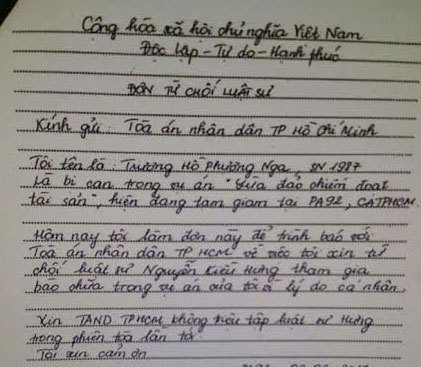 Cộng hòa xã hội chủ nghĩa Việt Nam
Độc lập - Tự do - Hạnh phúc
ĐƠN TỪ CHỐI LUẬT SƯ
Kính gửi: Tòa án nhân dân TP Hồ Chí Minh
Tôi tên là: Trương Hồ Phương Nga, SN 1987
Là bị can trong vụ án "Lừa đảo chiếm đoạt
tài sản", hiện đang tạm giam tại PA92, CATPHCM.
Hôm nay tôi làm đơn này để trình báo với
Tòa án nhân dân TP HCM về việc tôi xin từ
chối luật sư Nguyễn Kiều Hưng tham gia
bào chữa trong vụ án của tôi vì lý do cá nhân.
Xin TAND TPHCM không triệu tập luật sư Hưng
trong phiên tòa lần tới.
Tôi xin cảm ơn